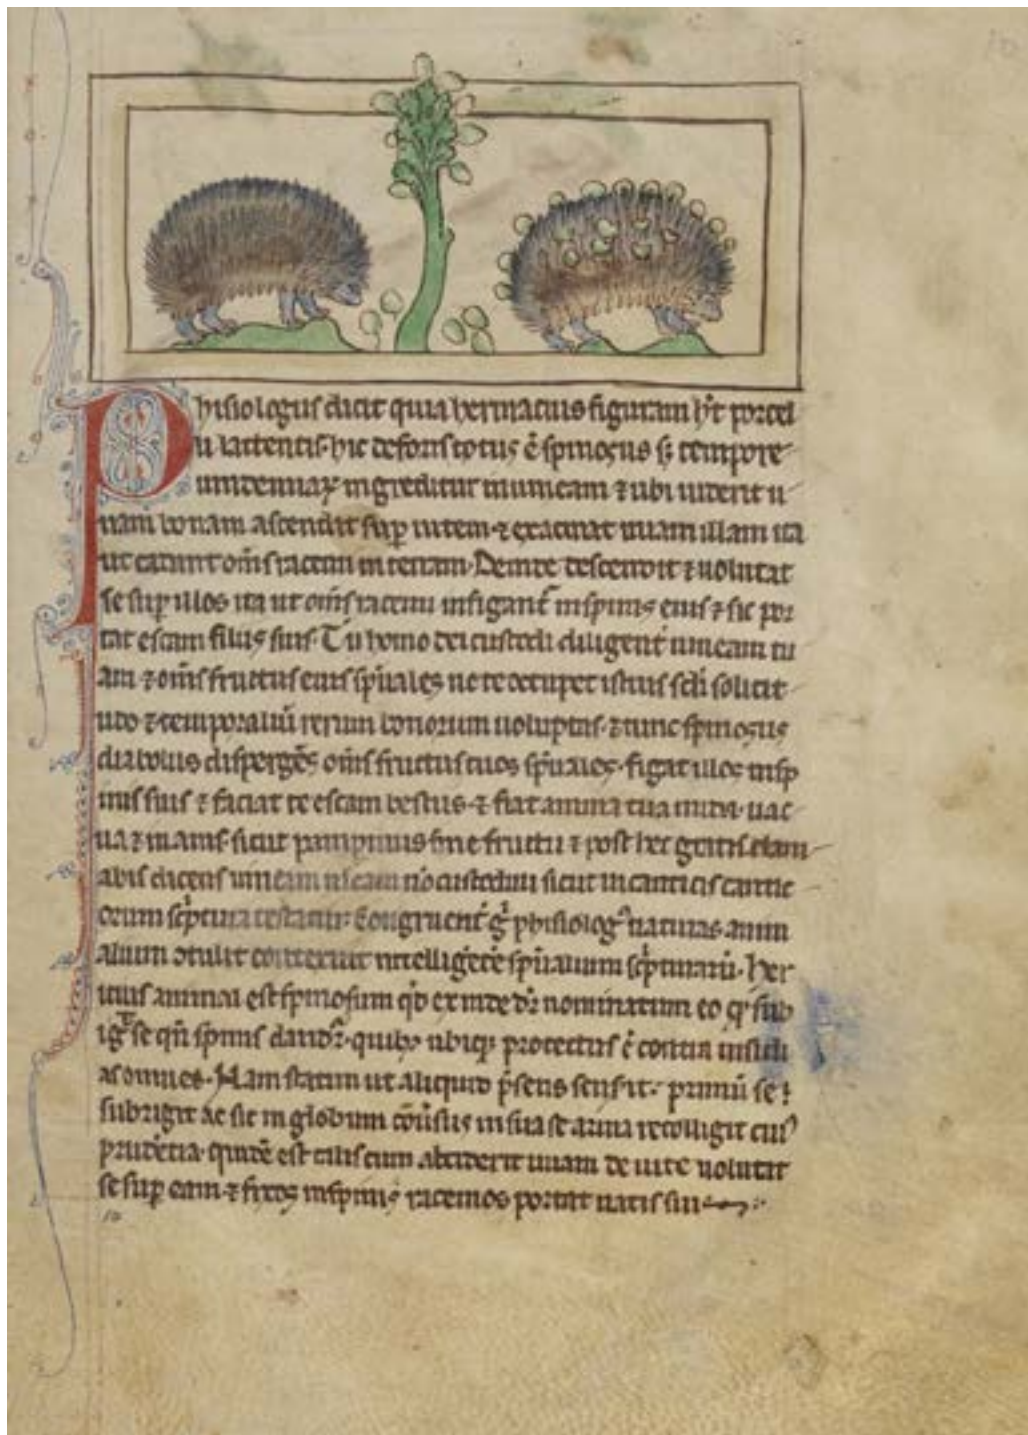 Phisiologus dicit quia herinatius figuram hr̄t porcel
li lactentis. hic deforis totus ē spinosus s; tempore
uindemiaꝝ ingreditur in uineam ⁊ ubi uiderit u
uam bonam ascendit suꝑ uitem ⁊ exacinat uuam illam ita
ut cadant om̄s racemi in terram. Deinde descendit ⁊ uolutat
se suꝑ illos ita ut om̄s racemi infigant̄ in spinis eius ⁊ sic por
tat escam filiis suis. Tu homo dei custodi diligent̄ uineam tu
am ⁊ om̄s fructus eius sp̄uales ne te occupet istius sc̄li solicit
udo ⁊ temporaliū rerum bonorum uoluptas. ⁊ tunc spinosus
diabolus dispergēs om̄s fructus tuos sp̄uales. figat illos in spi
nis suis ⁊ faciat te escam bestiis. ⁊ fiat anima tua nuda. uac
ua ⁊ inanis. sicut pampinus sine fructu ⁊ post hec gratis clam
abis dicens uineam meam nō custodiui sicut in canticis cantic
orum sc̄ptura testatur. Congruent̄ g̊ phisiologꝰ naturas anim
alium ⁊tulit ⁊ contexuit intelligētie sp̄ualium sc̄pturarū. Her
itius animal est spinosum q̄d exinde dr̄ nominatum eo ꝙ sub
ig̊ se qn̄ spinis claudit̄. quibꝫ ubiqꝫ protectus ē contra insidi
as omnes. Nam statim ut aliquid p̄sens sensit. primū se
subrigit ac sic in globum cōūsus in sua se arma recolligit cuiꝰ
prudētia quidē est talis cum absciderit uuam de uite uolutat
se suꝑ eam ⁊ fixos in spinis racemos portat natis suis